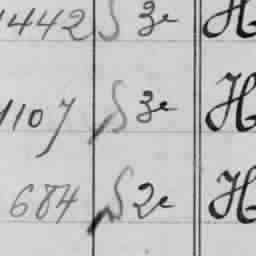 1442 S 3e H
1107 S 3e H
684 S 2e H